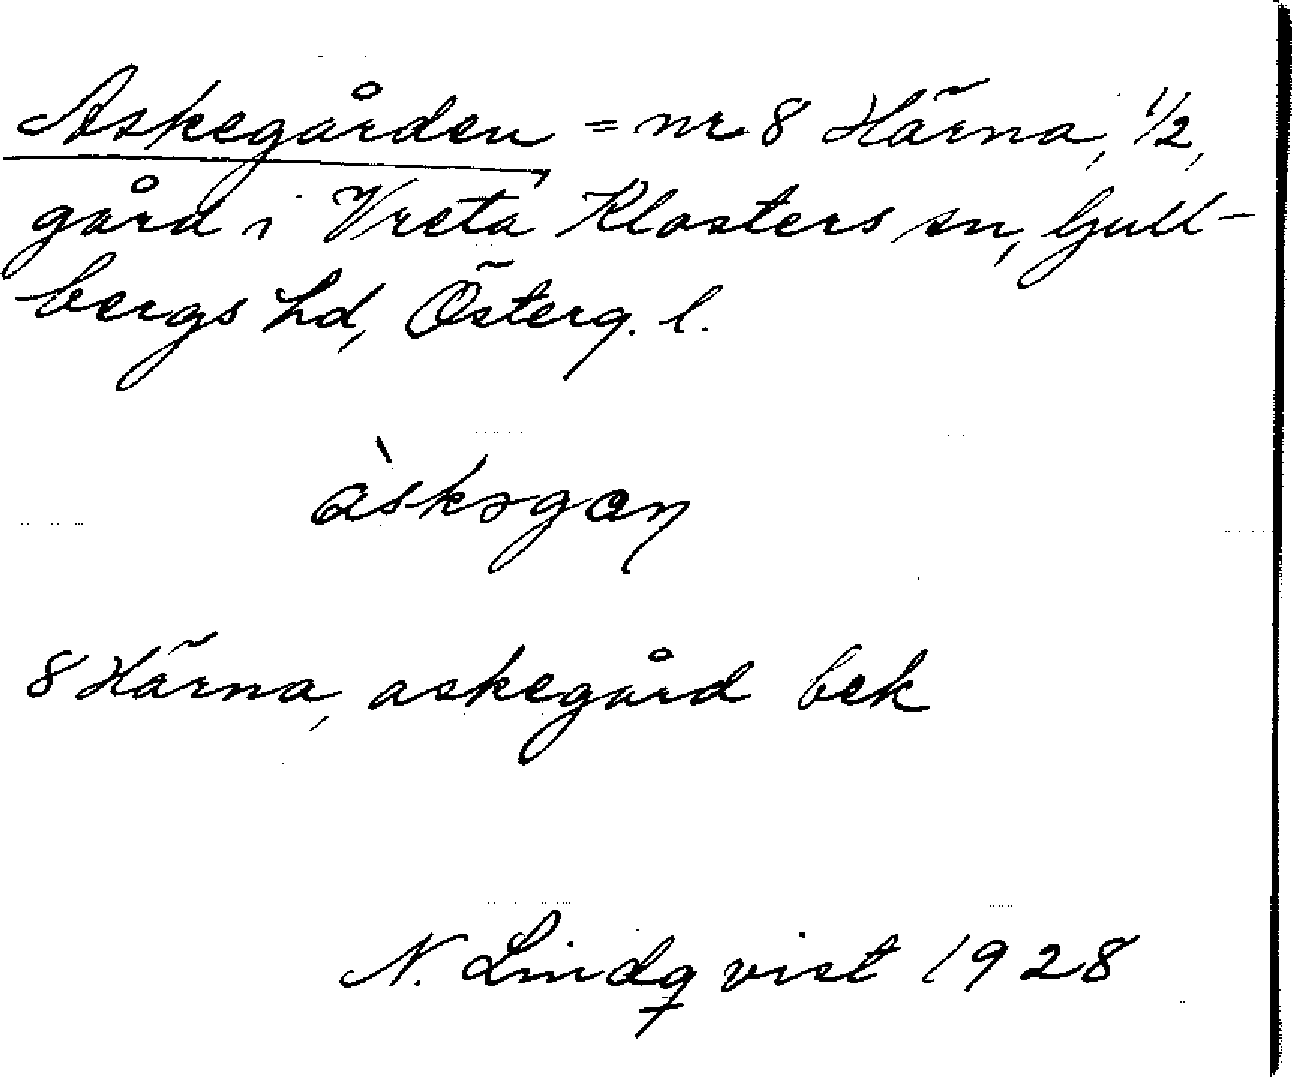 Askegården = nr 8 Härna, 1/2
gård i Vreta Klosters sn, Gull-
bergs hd, Österg. l.
àskəgaņ
8 Härna, askegård bek
N. Lindqvist 1928